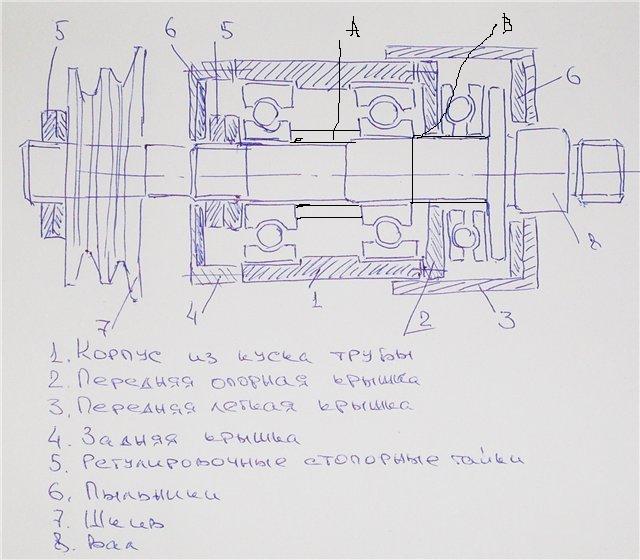 5
6
5
А
В
6
8
7
4
1
2
3
1. Корпус из куска трубы
2. Передняя опорная крышка
3. Передняя легкая крышка
4. Задняя крышка
5. Регулировочные стопорные гайки
6. Пыльники
7. Шкив
8. Вал